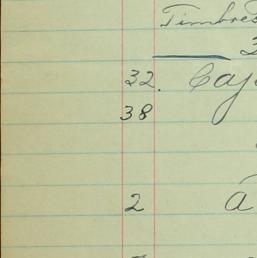 Timbres
32. Caj
38
2 á